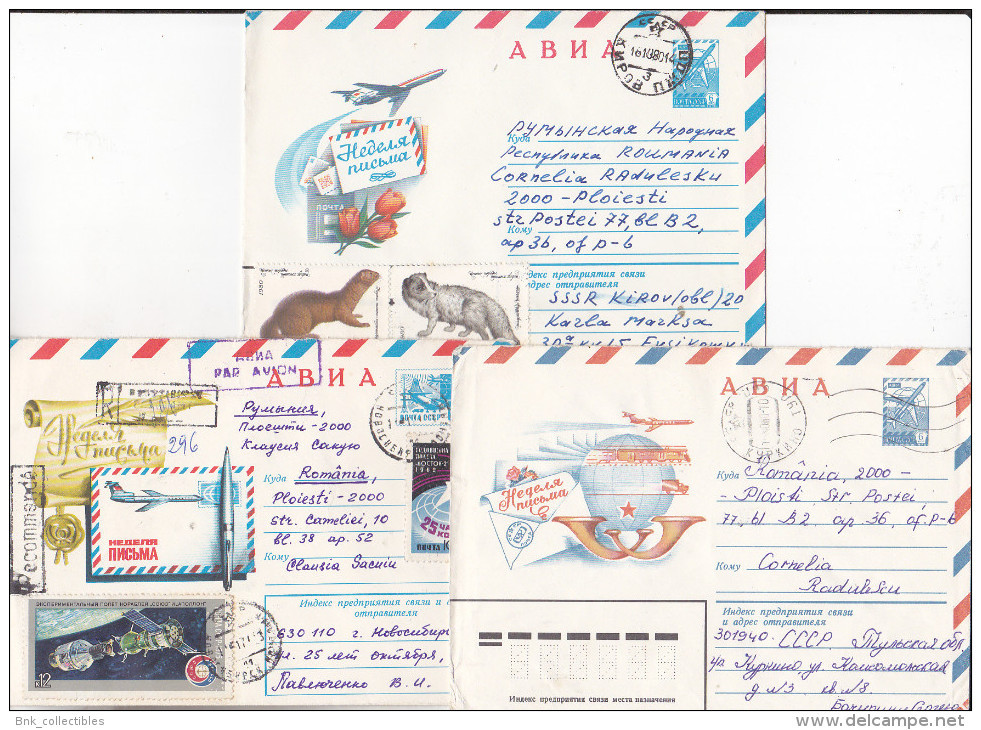 АВИА
СССР
КИРОВ
Неделя
письма
ПОЧТА
6
Румынская Народная
Куда
Республика ROUMANIA
Cornelia RADulesku
2000-Ploiesti
str Postei 77, bl B2,
Кому
ap 36, of p-6
Индекс предприятия связи
и адрес отправителя
SSSR Kirov (obl) 20
Karla Marksa
АВИА
PAR AVION
АВИА
Неделя
письма
296
Recommandé
НЕДЕЛЯ
ПИСЬМА
Румыния,
Плоешти-2000
Клаусия Сакую
Куда România,
Ploiesti-2000
str. Cameliei, 10
bl. 38 ap. 52
Кому
Clausia Sacuiu
ПОЧТА СССР
ВОСТОК-2
1962
25
ПОЧТА
ЭКСПЕРИМЕНТАЛЬНЫЙ ПОЛЕТ КОРАБЛЕЙ „СОЮЗ" И „АПОЛЛОН"
К12
Индекс предприятия связи и
отправителя
630110 г. Новосибирск
ул. 25 лет октября,
Павлюченко В. И.
АВИА
КУРКИНО
6
Неделя
письма
Куда România, 2000 -
- Ploisti Str. Postei
77, bl B2 ap 36, of. P-6
Кому Cornelia
Radulescu
Индекс предприятия связи
и адрес отправителя
301940. СССР Тульская обл.
Куркино ул. Комсомольская
д. N3 кв. N8.
Индекс предприятия связи места назначения
Bnk_collectibles
www.delcampe.net